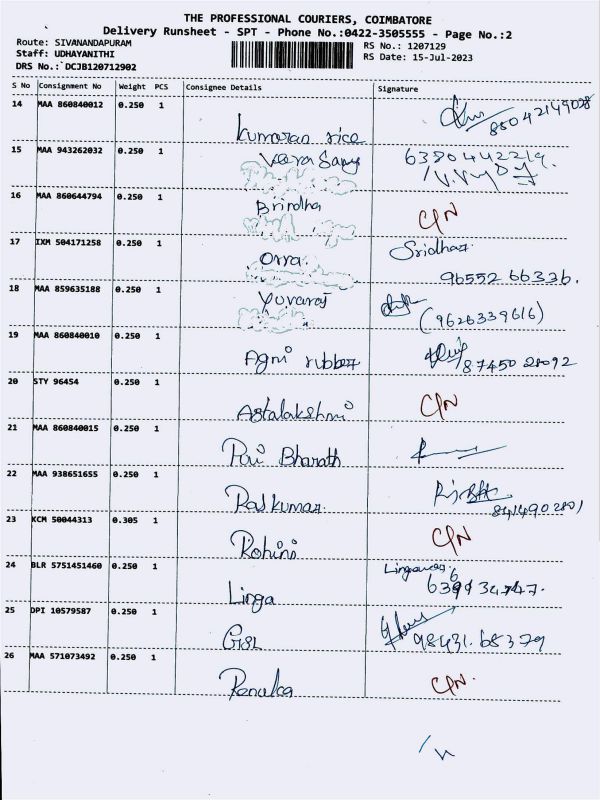 THE PROFESSIONAL COURIERS, COIMBATORE
Delivery Runsheet - SPT - Phone No.:0422-3505555 - Page No.:2
Route: SIVANANDAPURAM
RS No.: 1207129
Staff: UDHAYANITHI
RS Date: 15-Jul-2023
DRS No.: DCJB120712902
S No Consignment No Weight PCS Consignee Details Signature
14 MAA 860840012 0.250 1
kumaran rice
15 MAA 943262032 0.250 1
Veera Samy 6380442219.
16 MAA 860644794 0.250 1
Brindha C/N
17 IXM 504171258 0.250 1
Orra Sridhar.
96552 66336.
18 MAA 859635188 0.250 1
Yuvaraj (9626339616)
19 MAA 860840010 0.250 1
Agni rubber 87450 28092
20 STY 96454 0.250 1
Astalakshmi C/N
21 MAA 860840015 0.250 1
Pavi Bharath
22 MAA 938651655 0.250 1
Rajkumar 8414902801
23 KCM 50044313 0.305 1
Rohini C/N
24 BLR 5751451460 0.250 1
Linga
25 DPI 10579587 0.250 1
98431.68379
26 MAA 571073492 0.250 1
Renuka C/N.